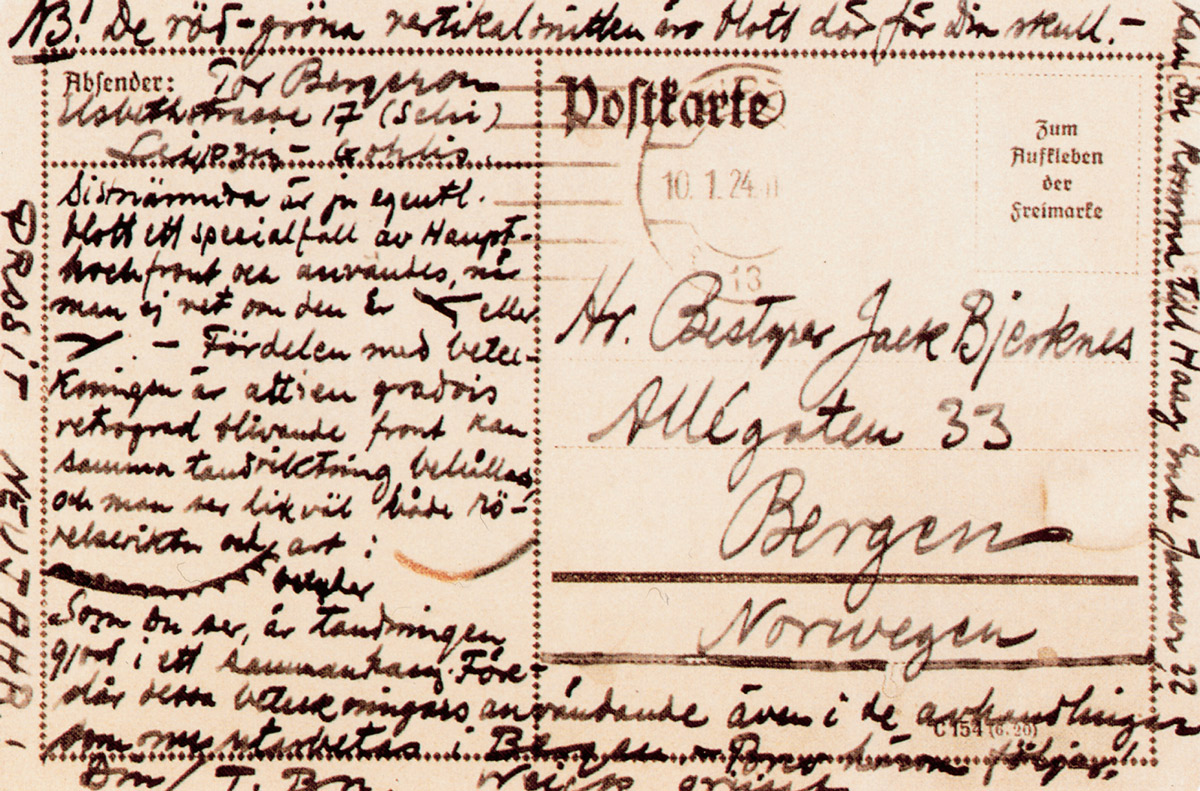 NB! De röd-gröna vertikalsnitten äro blott där för Din skull.-
Absender: Tor Bergeron
Elsbethstrasse 17 (Schi)
Leipzig - Gohlis.
är ju egentl.
blott ett specialfall av Haupt-
front och användes, när
man ej vet om den är eller
. - Fördelen med beteck-
ningen är att en gradvis
retrograd blivande front kan
samma tandriktning behållas
och man ser likväl både rö-
relseriktn och art :
betyder
Som Du ser, är tandningen
gjord i ett sammanhang. Före-
slår dessa beteckningars användande även i de avhandlingar
som nu utarbetas i Bergen - Brev härom följer.
Din / T. Bn.
PROSIT NEUJAHR!
Postkarte
10.1.24.11
13
Zum
Aufkleben
der
Freimarke
Hr. Bestyrer Jack Bjerknes
Allégaten 33
Bergen
Norwegen
C 154 (6.20)
Kan Du komma till Haag Ende Januar 22